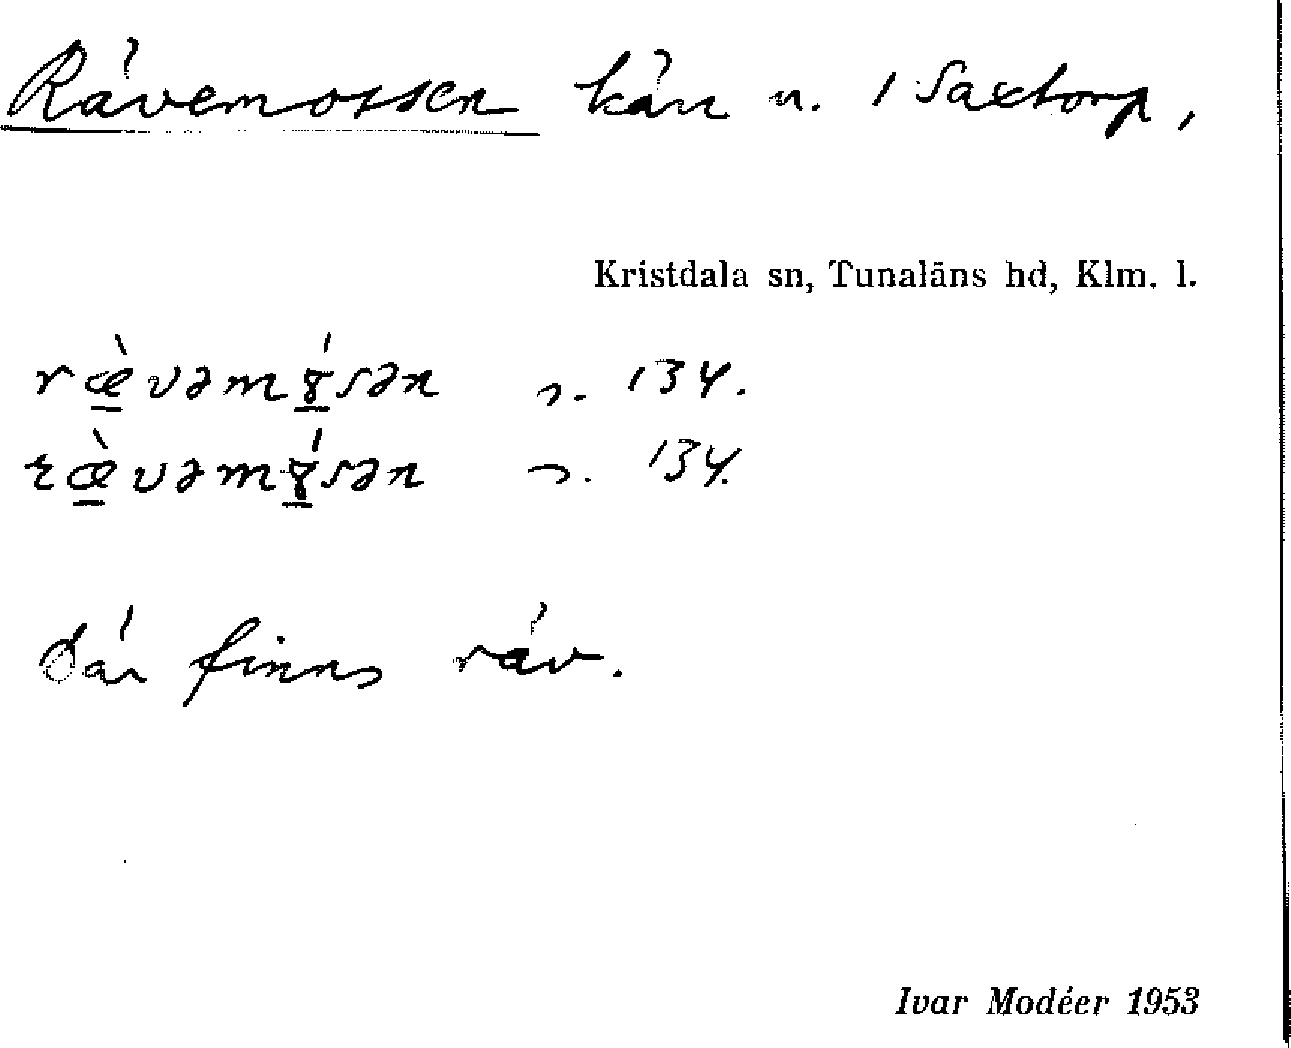 Rävemossen kärr n. / Saxtorp,
Kristdala sn, Tunaläns hd, Klm. l.
ræ̀vəmɤ́sən s. 134.
ɽæ̀vəmɤ́sən s. 134.
Där finns räv.
Ivar Modéer 1953